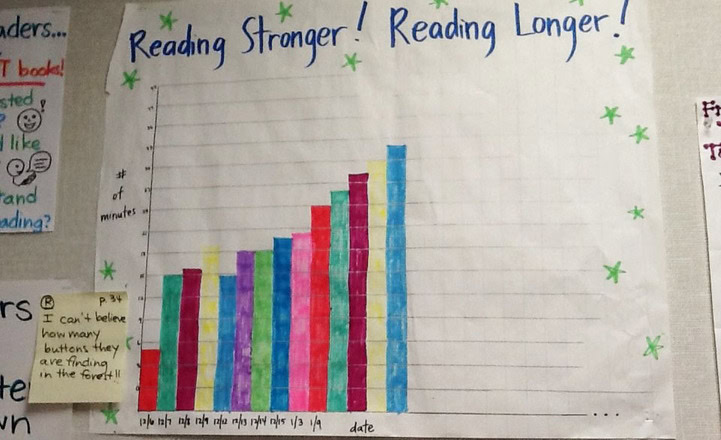 Reading Stronger! Reading Longer!
aders...
T books!
sted
like
and
ading?
#
of
minutes
rs
te
wn
R p. 34
I can't believe
how many
buttons they
are finding
in the forest!!
12/6 12/7 12/8 12/9 12/12 12/13 12/14 12/15 1/3 1/9
date ...